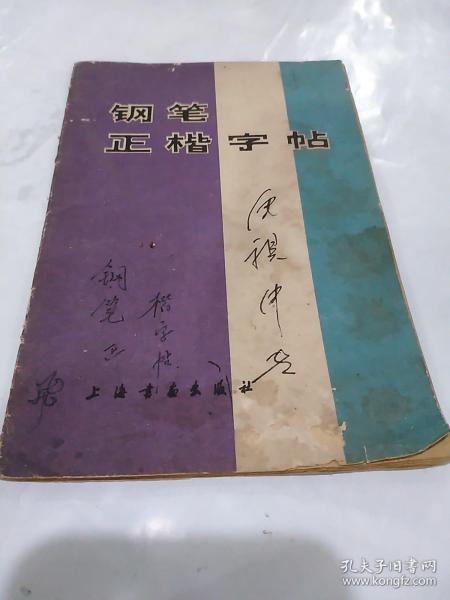 钢笔
正楷字帖
钢笔正
楷字帖
上海书画出版社
孔夫子旧书网
www.kongfz.com